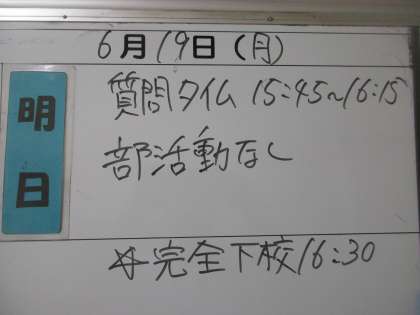 6月19日(月)
明日
質問タイム 15:45~16:15
部活動なし
☆完全下校16:30